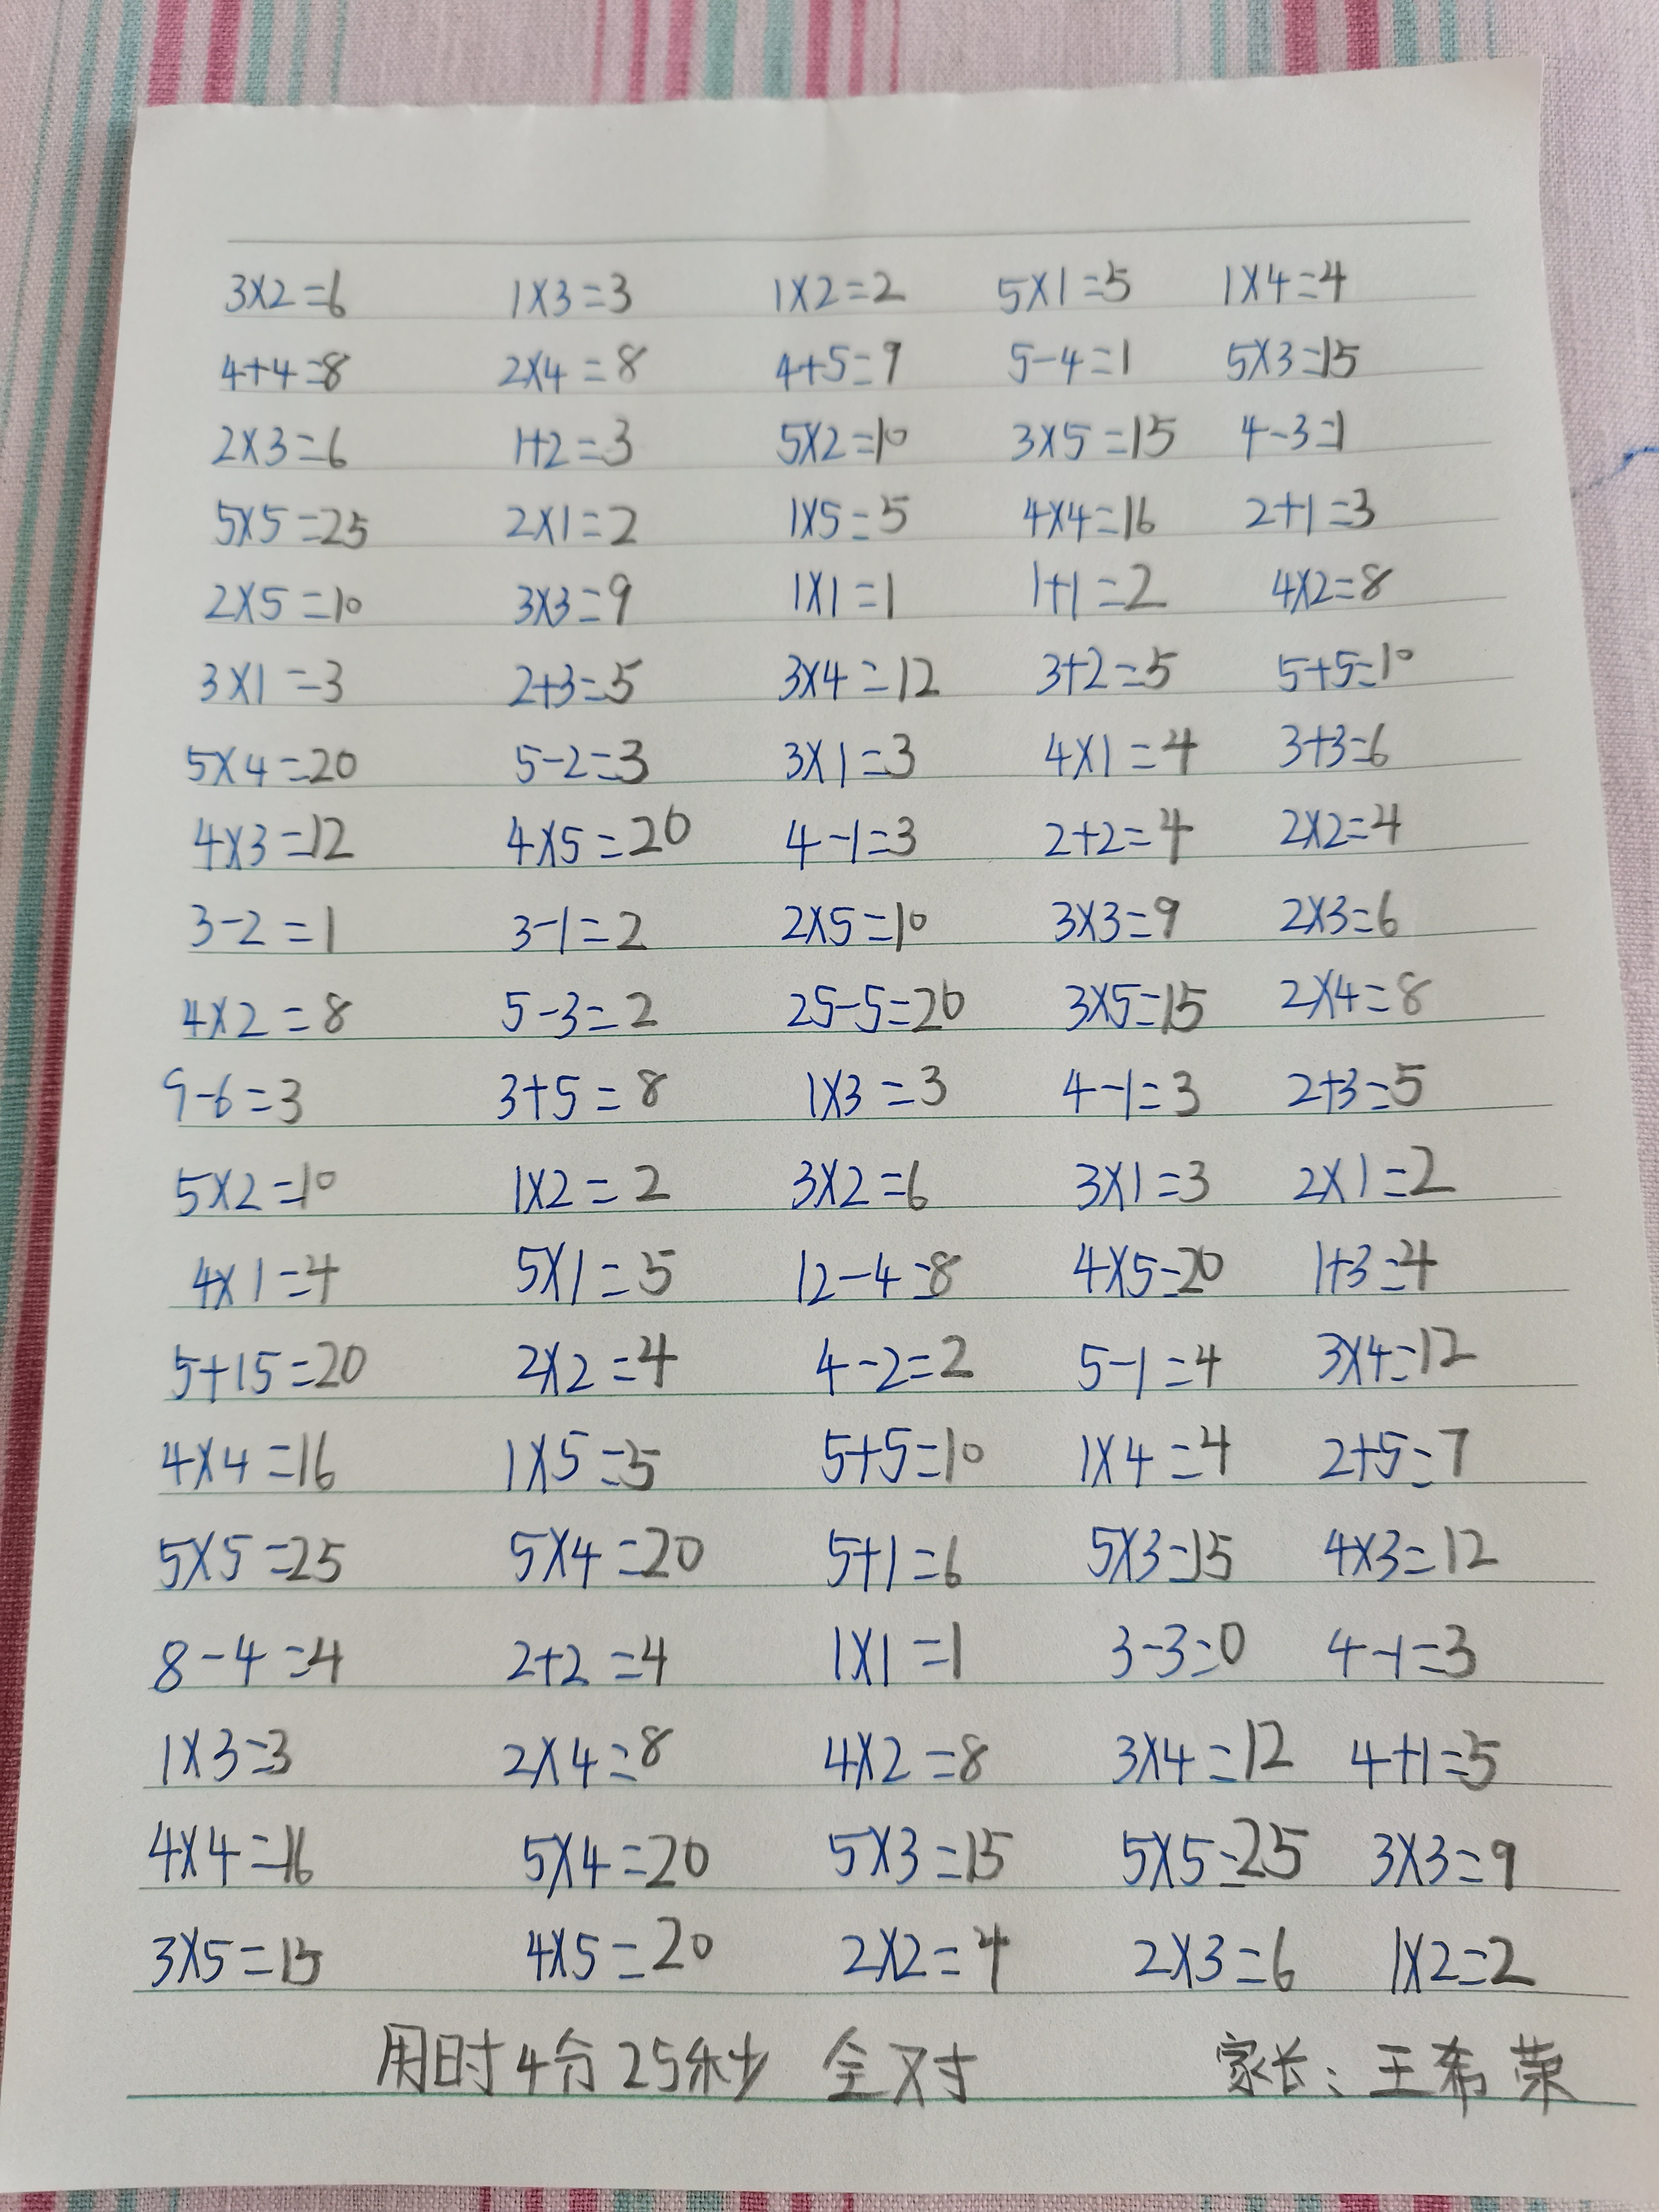 3×2=6 1×3=3 1×2=2 5×1=5 1×4=4
4+4=8 2×4=8 4+5=9 5-4=1 5×3=15
2×3=6 1+2=3 5×2=10 3×5=15 4-3=1
5×5=25 2×1=2 1×5=5 4×4=16 2+1=3
2×5=10 3×3=9 1×1=1 1+1=2 4×2=8
3×1=3 2+3=5 3×4=12 3+2=5 5+5=10
5×4=20 5-2=3 3×1=3 4×1=4 3+3=6
4×3=12 4×5=20 4-1=3 2+2=4 2×2=4
3-2=1 3-1=2 2×5=10 3×3=9 2×3=6
4×2=8 5-3=2 25-5=20 3×5=15 2×4=8
9-6=3 3+5=8 1×3=3 4-1=3 2+3=5
5×2=10 1×2=2 3×2=6 3×1=3 2×1=2
4×1=4 5×1=5 12-4=8 4×5=20 1+3=4
5+15=20 2×2=4 4-2=2 5-1=4 3×4=12
4×4=16 1×5=5 5+5=10 1×4=4 2+5=7
5×5=25 5×4=20 5+1=6 5×3=15 4×3=12
8-4=4 2+2=4 1×1=1 3-3=0 4-1=3
1×3=3 2×4=8 4×2=8 3×4=12 4+1=5
4×4=16 5×4=20 5×3=15 5×5=25 3×3=9
3×5=15 4×5=20 2×2=4 2×3=6 1×2=2
用时4分25秒 全对 家长：王希荣